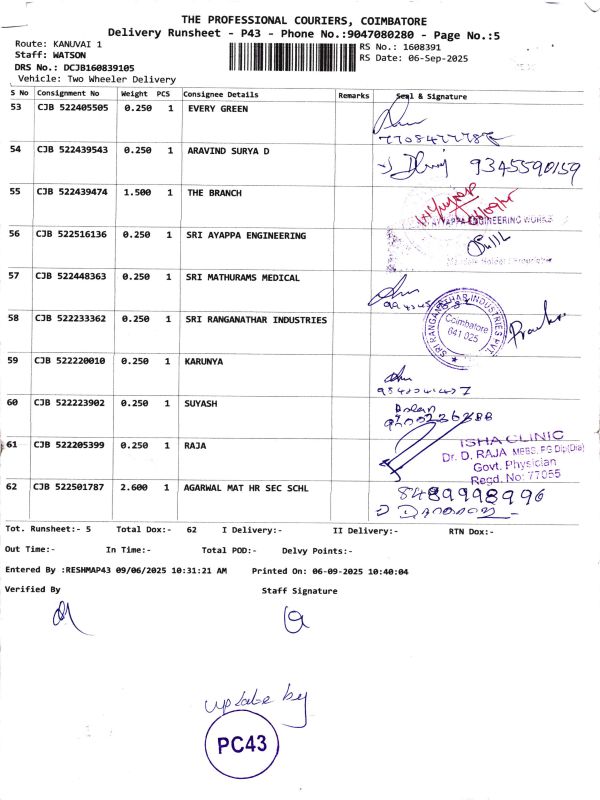 THE PROFESSIONAL COURIERS, COIMBATORE
Delivery Runsheet - P43 - Phone No.:9047080280 - Page No.:5
Route: KANUVAI 1
Staff: WATSON
DRS No.: DCJB160839105
Vehicle: Two Wheeler Delivery
RS No.: 1608391
RS Date: 06-Sep-2025
S No Consignment No Weight PCS Consignee Details Remarks Seal & Signature
53 CJB 522405505 0.250 1 EVERY GREEN
54 CJB 522439543 0.250 1 ARAVIND SURYA D 9345590159
55 CJB 522439474 1.500 1 THE BRANCH
AYYAPPA ENGINEERING WORKS
56 CJB 522516136 0.250 1 SRI AYAPPA ENGINEERING
57 CJB 522448363 0.250 1 SRI MATHURAMS MEDICAL
58 CJB 522233362 0.250 1 SRI RANGANATHAR INDUSTRIES
SRI RANGANATHAR INDUSTRIES PVT.
Coimbatore
641 025
59 CJB 522220010 0.250 1 KARUNYA
60 CJB 522223902 0.250 1 SUYASH
61 CJB 522205399 0.250 1 RAJA
ISHA CLINIC
Dr. D. RAJA MBBS, PG Dip(Dia)
Govt. Physician
Regd. No: 77055
62 CJB 522501787 2.600 1 AGARWAL MAT HR SEC SCHL 8489998996
Tot. Runsheet:- 5 Total Dox:- 62 I Delivery:- II Delivery:- RTN Dox:-
Out Time:- In Time:- Total POD:- Delvy Points:-
Entered By :RESHMAP43 09/06/2025 10:31:21 AM Printed On: 06-09-2025 10:40:04
Verified By Staff Signature
update by
PC43